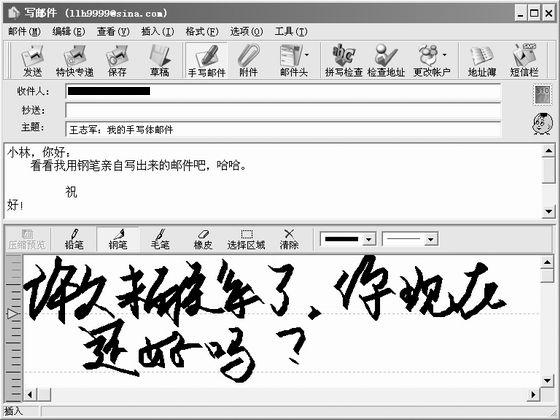 写邮件 (llh9999@sina.com)
邮件(M) 编辑(E) 查看(V) 插入(I) 格式(F) 选项(O) 工具(T)
发送 特快专递 保存 草稿 手写邮件 附件 邮件头 拼写检查 检查地址 更改帐户 地址簿 短信栏
收件人:
抄送:
主题: 王志军:我的手写体邮件
小林,你好:
看看我用钢笔亲自写出来的邮件吧,哈哈。
祝
好!
压缩预览 铅笔 钢笔 毛笔 橡皮 选择区域 清除
许久未和你联系了,你现在
还好吗?
插入